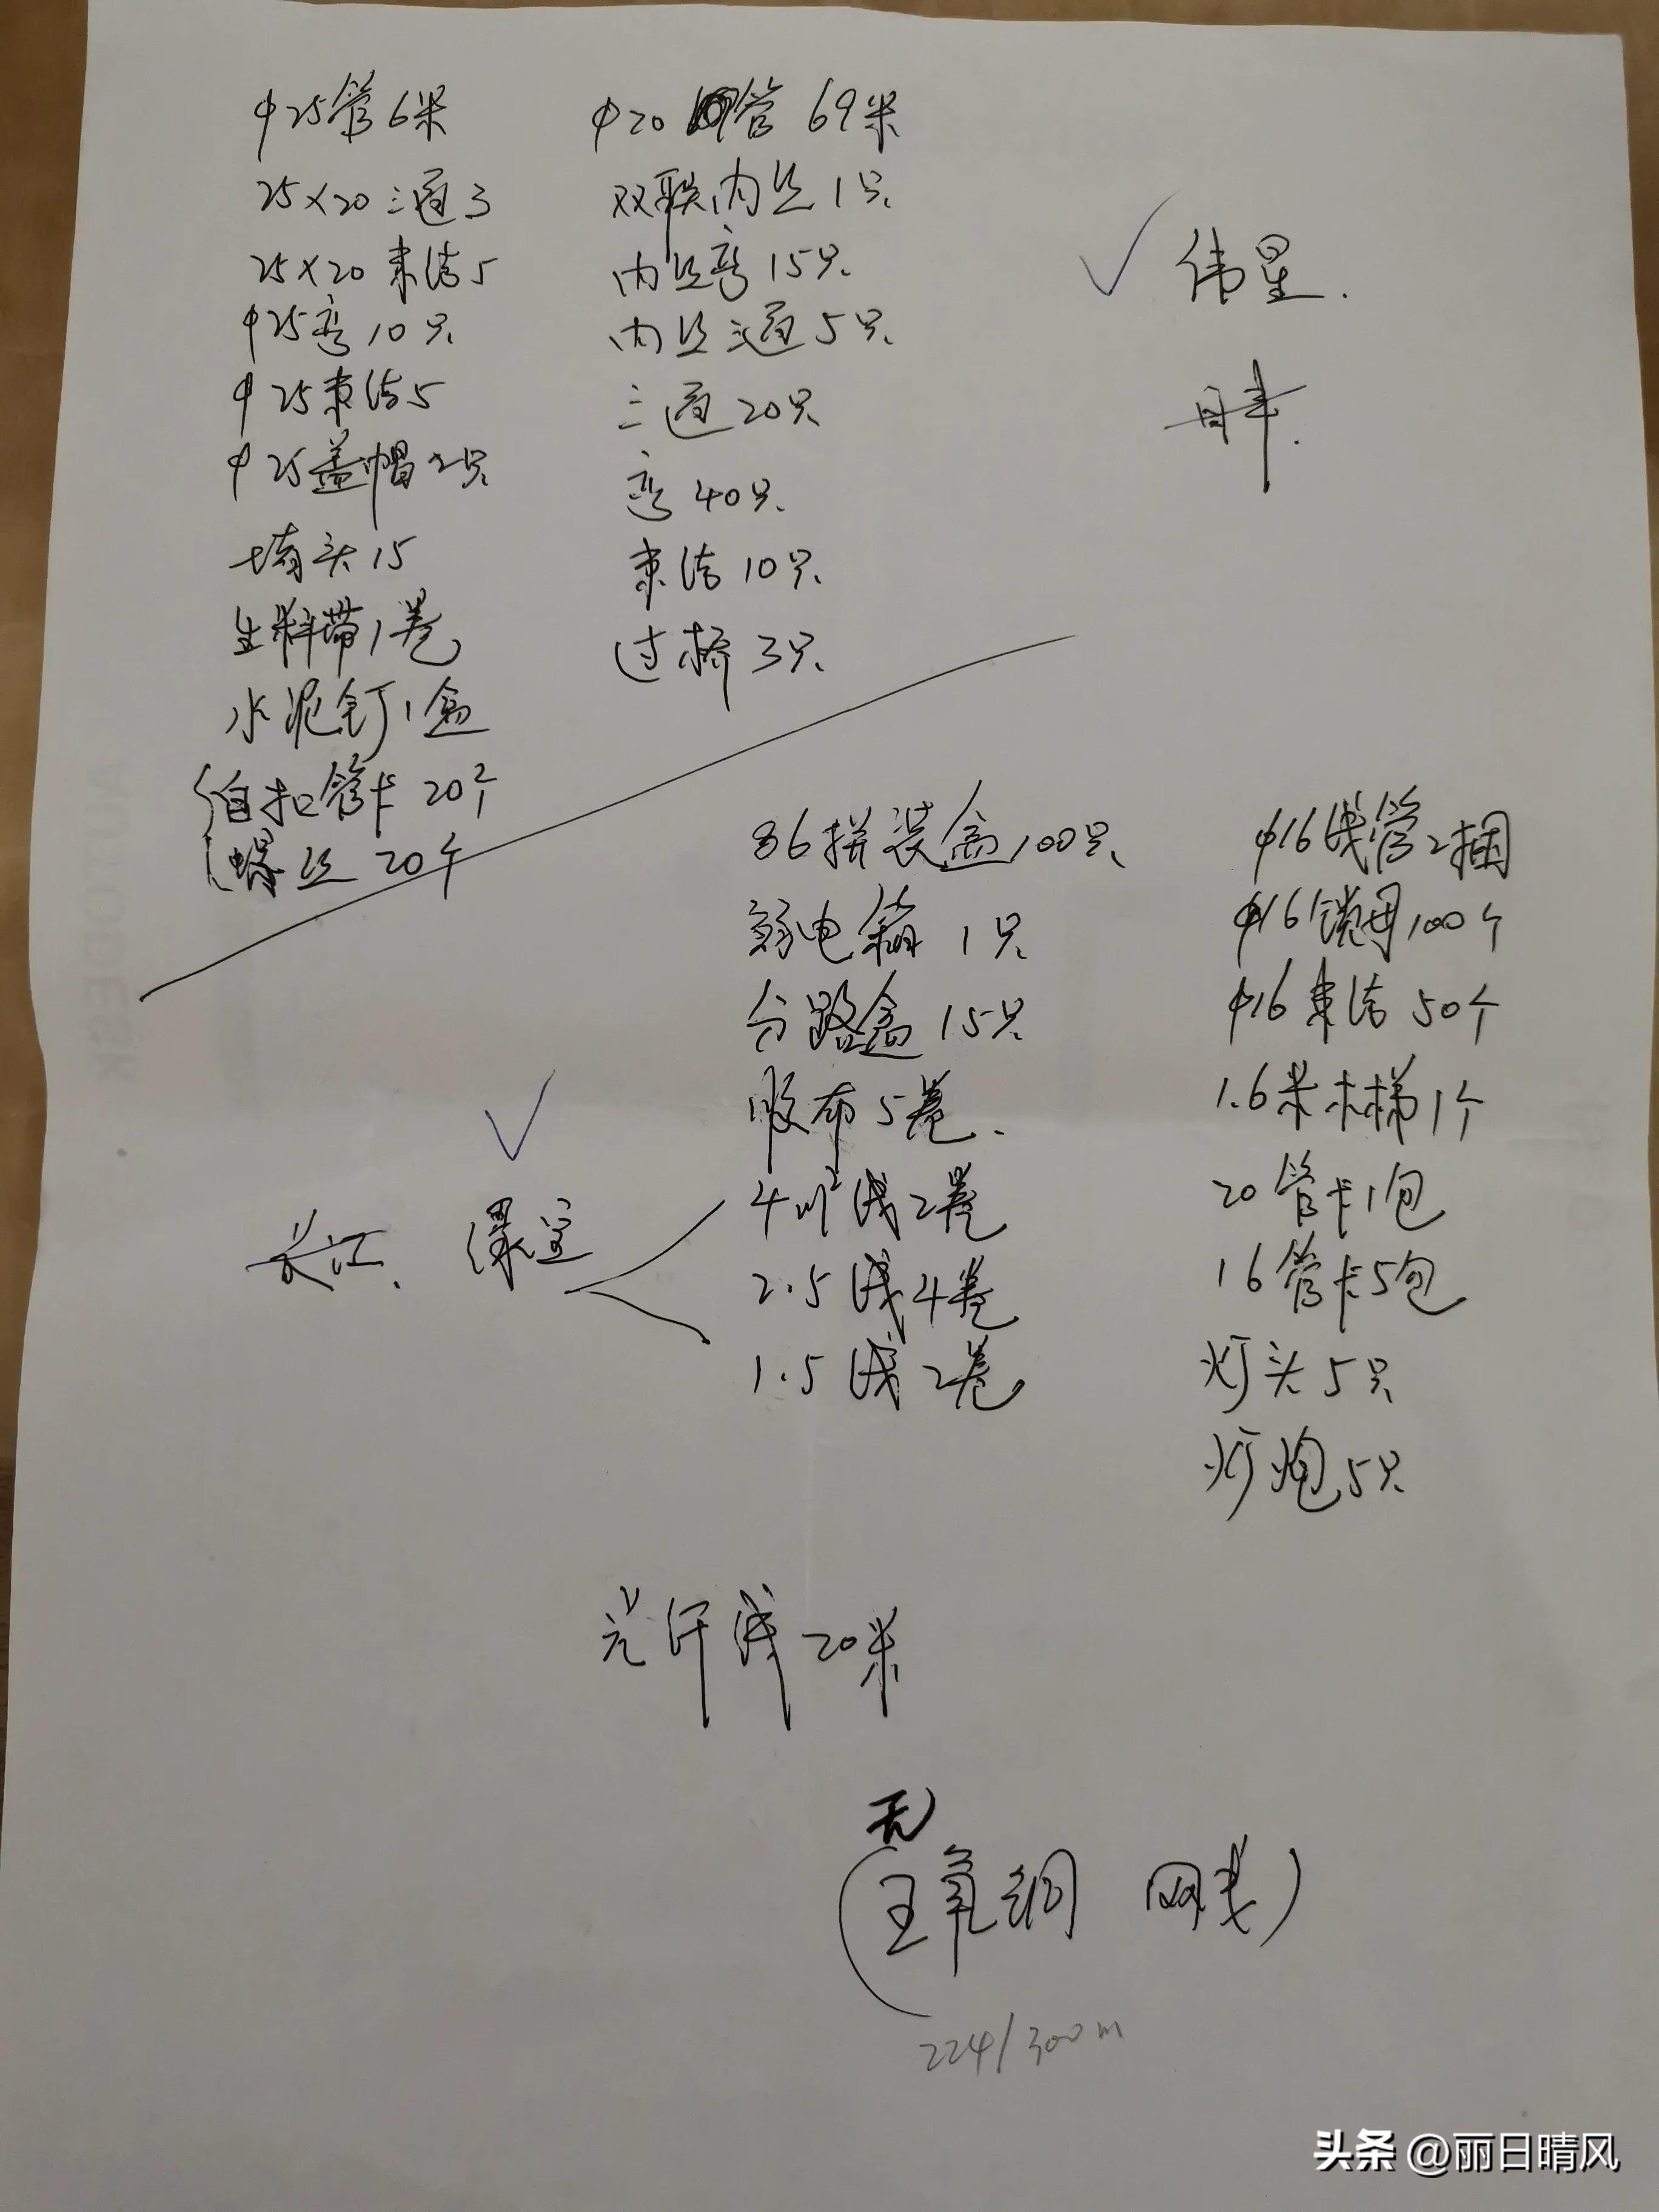 φ25管6米
25×20三通3
25×20束洁5
φ25弯10只
φ25束洁5
φ25盖帽2只
堵头15
生料带1卷
水泥钉1盒
自扣管卡20个
螺丝20个
φ20管69米
双联内丝1只
内丝弯15只
内丝三通5只
三通20只
弯40只
束洁10只
过桥3只
✓伟星.
日丰.
86拼装盒100只
弱电箱1只
分路盒15只
胶布5卷.
4m²线2卷
2.5线4卷
1.5线2卷
✓
长江、绿宝
φ16线管2捆
φ16锁母100个
φ16束洁50个
1.6米木梯1个
20管卡1包
16管卡5包
灯头5只
灯炮5只
光纤线20米
无
氧铜 网线)
224/300m
头条@丽日晴风
AUTODESK